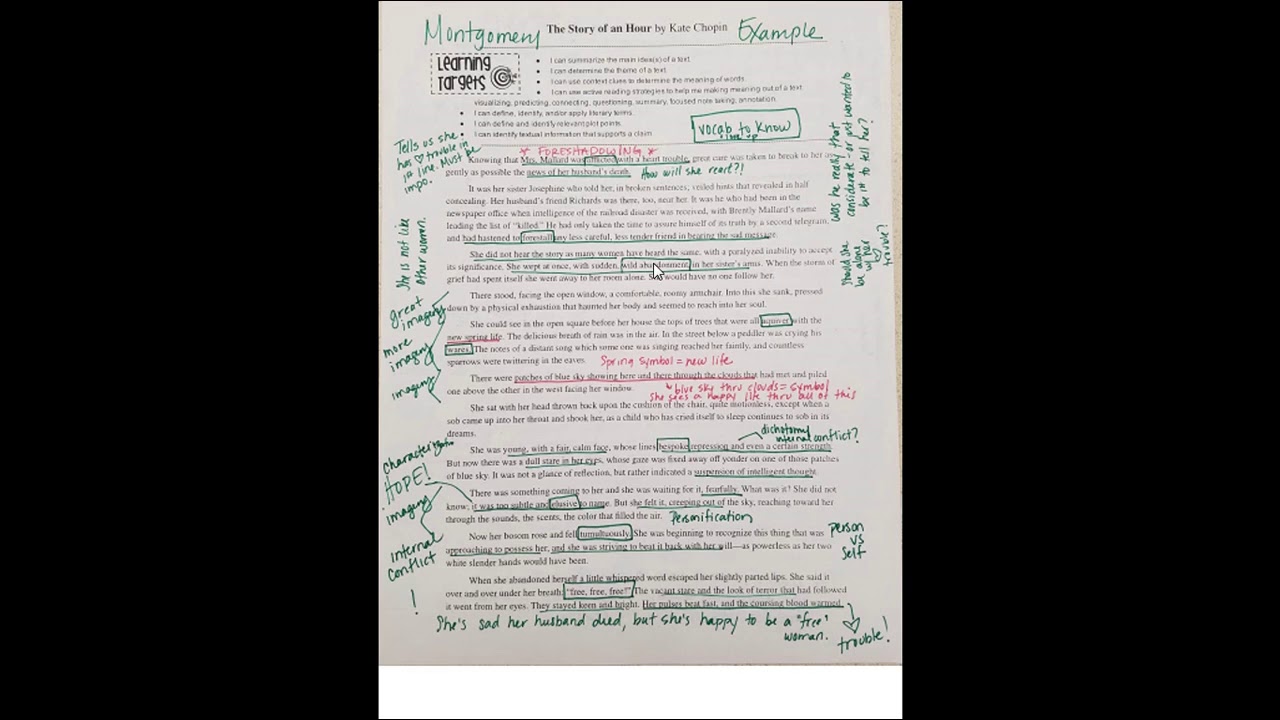 Montgomery The Story of an Hour by Kate Chopin Example
Learning Targets
• I can summarize the main idea(s) of a text.
• I can determine the theme of a text.
• I can use context clues to determine the meaning of words.
• I can use active reading strategies to help me making meaning out of a text
visualizing, predicting, connecting, questioning, summary, focused note taking, annotation.
• I can define, identify, and/or apply literary terms.
• I can define and identify relevant plot points.
• I can identify textual information that supports a claim.
vocab to know
Tells us she
has ♡ trouble in
1st line. Must be
impo.
* FORESHADOWING *
Knowing that Mrs. Mallard was afflicted with a heart trouble, great care was taken to break to her as
gently as possible the news of her husband's death. How will she react?!
was he really that
considerate - or just wanted to
be 1st to tell her?
It was her sister Josephine who told her, in broken sentences; veiled hints that revealed in half
concealing. Her husband's friend Richards was there, too, near her. It was he who had been in the
newspaper office when intelligence of the railroad disaster was received, with Brently Mallard's name
leading the list of "killed." He had only taken the time to assure himself of its truth by a second telegram,
and had hastened to forestall any less careful, less tender friend in bearing the sad message.
She is not like
other women.
She did not hear the story as many women have heard the same, with a paralyzed inability to accept
its significance. She wept at once, with sudden, wild abandonment, in her sister's arms. When the storm of
grief had spent itself she went away to her room alone. She would have no one follow her.
Should she
be alone
w/ her
♡
trouble?
There stood, facing the open window, a comfortable, roomy armchair. Into this she sank, pressed
down by a physical exhaustion that haunted her body and seemed to reach into her soul.
great
imagery
She could see in the open square before her house the tops of trees that were all aquiver with the
new spring life. The delicious breath of rain was in the air. In the street below a peddler was crying his
wares. The notes of a distant song which some one was singing reached her faintly, and countless
sparrows were twittering in the eaves. Spring symbol = new life
more
imagery
There were patches of blue sky showing here and there through the clouds that had met and piled
one above the other in the west facing her window.
↳ blue sky thru clouds = symbol
She sees a happy life thru all of this
imagery
She sat with her head thrown back upon the cushion of the chair, quite motionless, except when a
sob came up into her throat and shook her, as a child who has cried itself to sleep continues to sob in its
dreams.
dichotomy
internal conflict?
She was young, with a fair, calm face, whose lines bespoke repression and even a certain strength.
But now there was a dull stare in her eyes, whose gaze was fixed away off yonder on one of those patches
of blue sky. It was not a glance of reflection, but rather indicated a suspension of intelligent thought.
characterization
HOPE!
There was something coming to her and she was waiting for it, fearfully. What was it? She did not
know; it was too subtle and elusive to name. But she felt it, creeping out of the sky, reaching toward her
through the sounds, the scents, the color that filled the air. Personification
imagery
Now her bosom rose and fell tumultuously. She was beginning to recognize this thing that was
approaching to possess her, and she was striving to beat it back with her will—as powerless as her two
white slender hands would have been.
internal
conflict
!
person
vs
self
When she abandoned herself a little whispered word escaped her slightly parted lips. She said it
over and over under her breath: "free, free, free!" The vacant stare and the look of terror that had followed
it went from her eyes. They stayed keen and bright. Her pulses beat fast, and the coursing blood warmed
She's sad her husband died, but she's happy to be a "free"
woman.
♡
trouble!